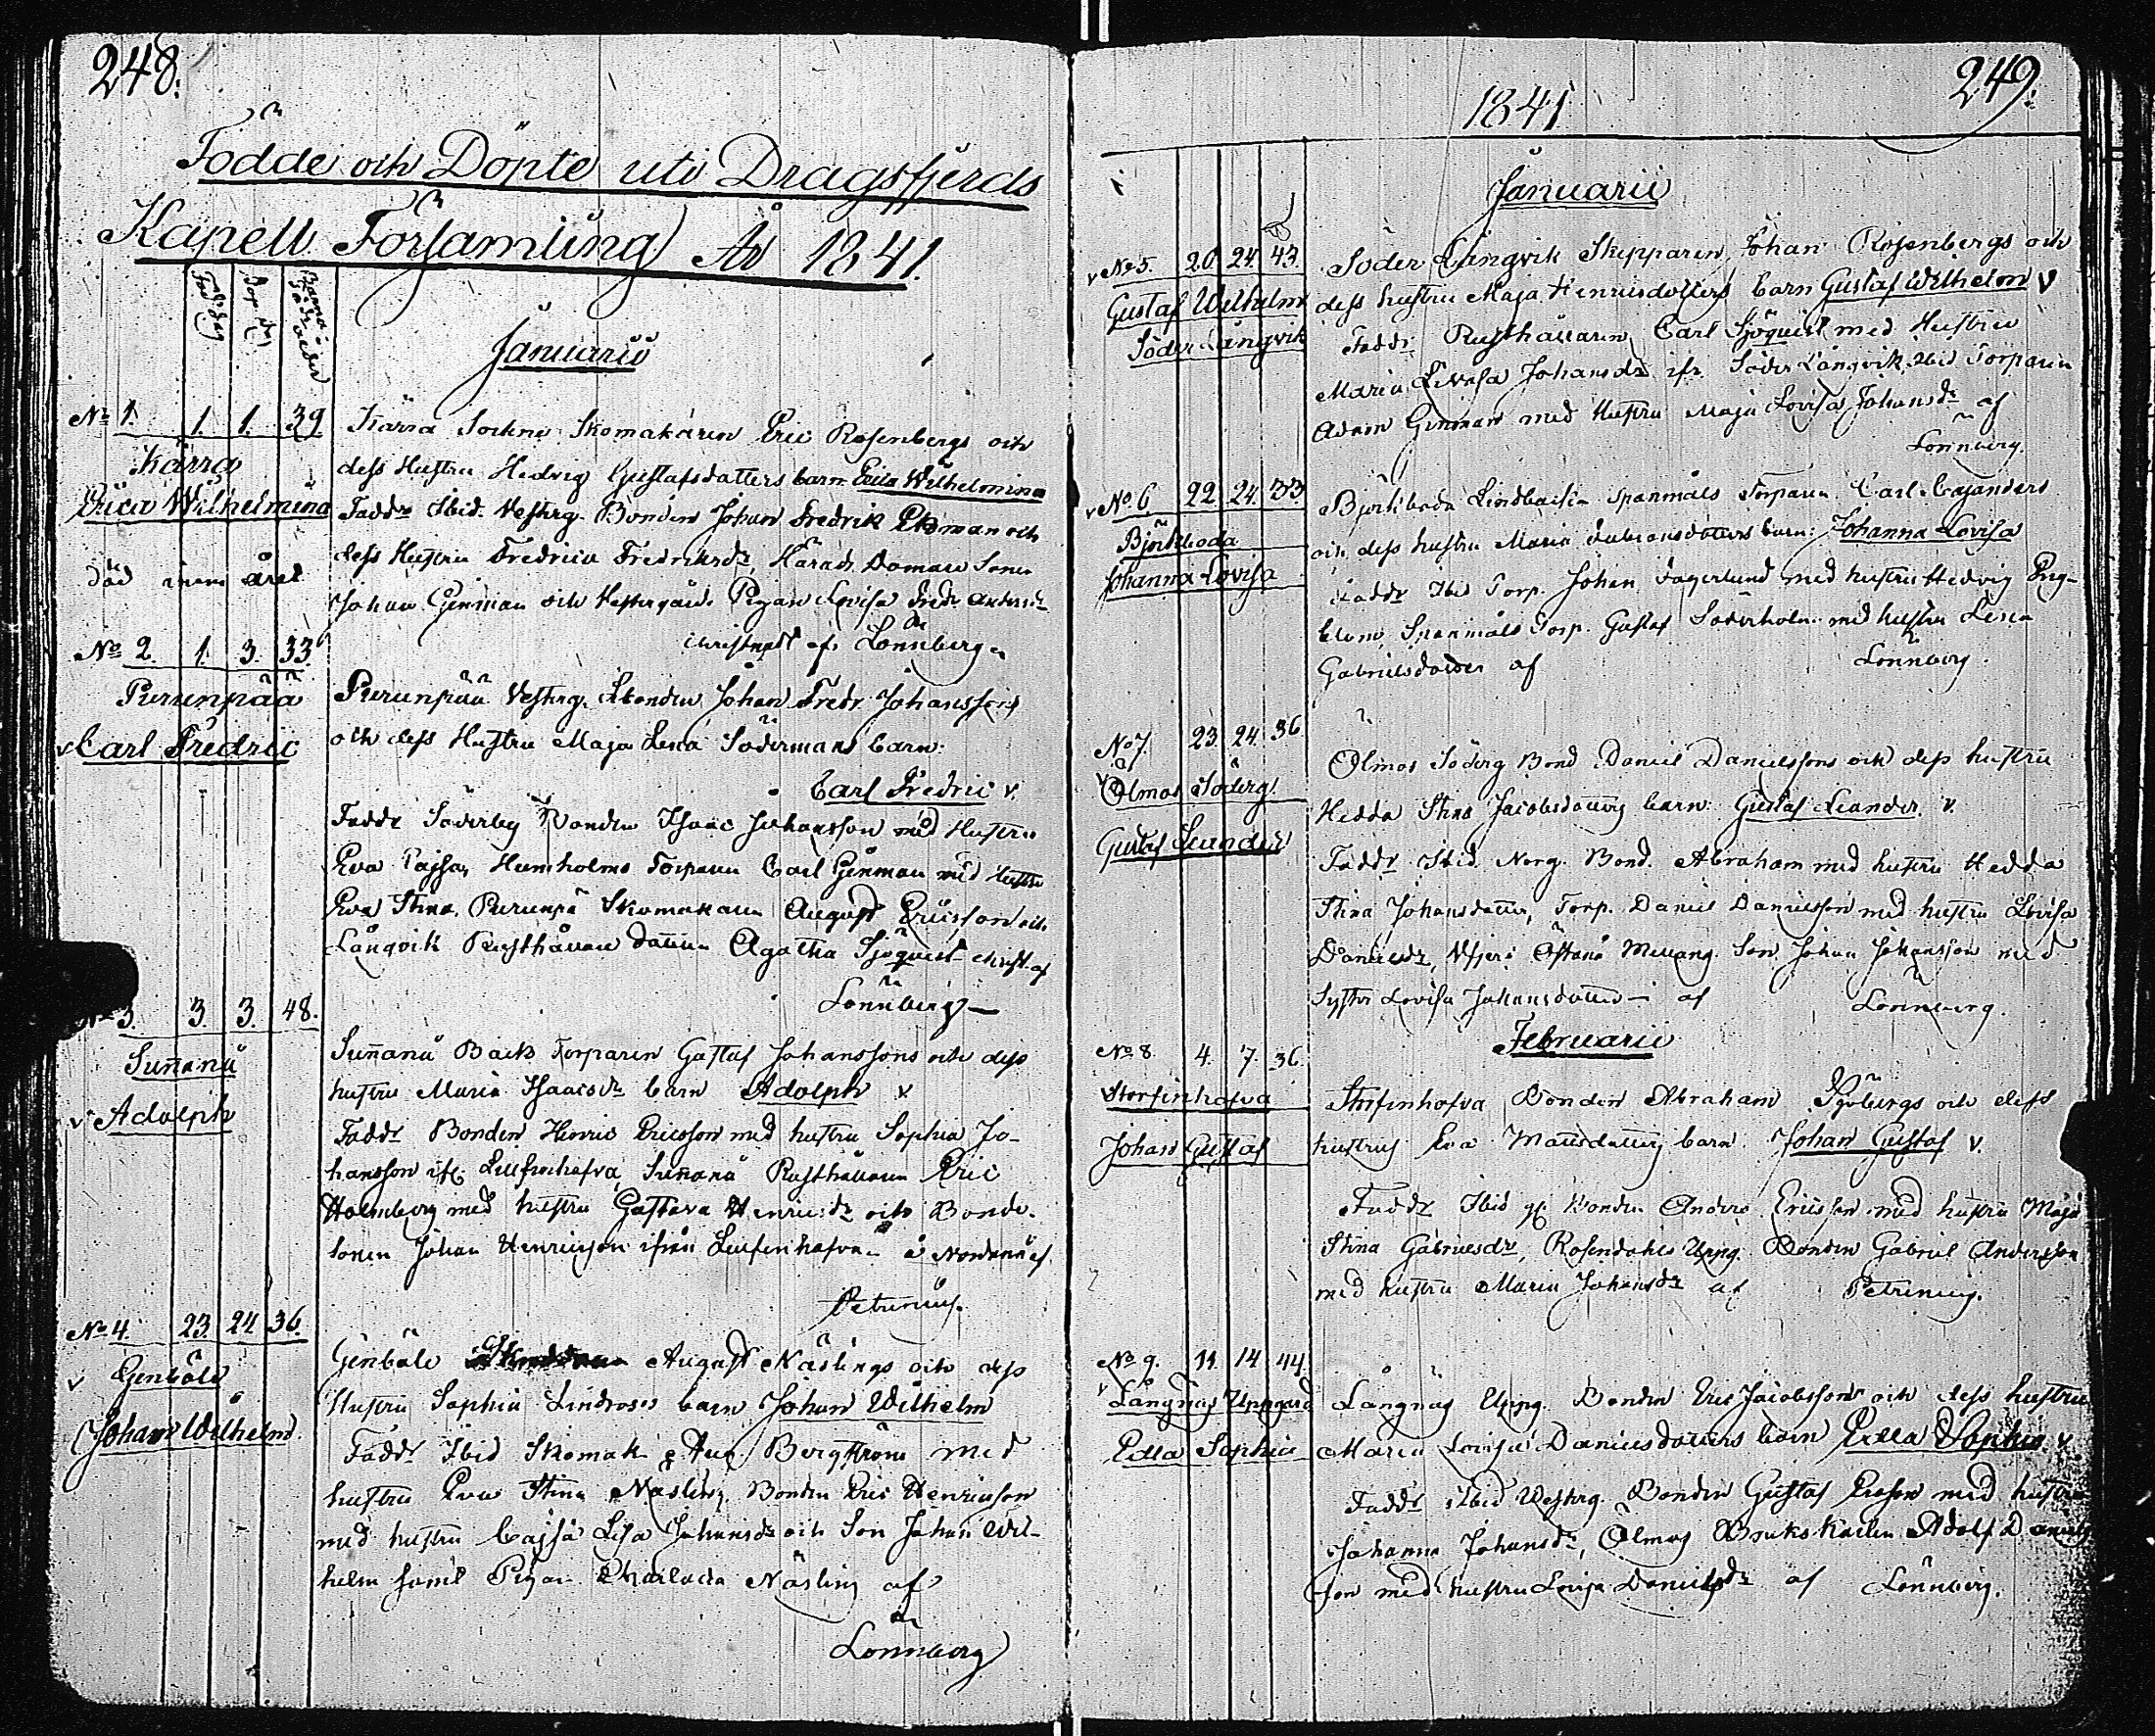 248.
Födde och Döpte uti Dragsfjerds
Kapell Församling År 1841.
Januarii
No 1. 1. 1. 39
Kärra
Erica Wilhelmina
död inom året
Kärra Sockne Skomakaren Eric Rosenbergs och
dess Hustru Hedvig Gustafsdotters barn Erica Wilhelmina
Faddr Ibid. Vesterg. Bonden Johan Fredrik Ekman och
dess Hustru Fredrica Fredriksdr, Härads Domare Sonen
Johan Genman och Vestergårds Pigan Lovisa Fredr. Andersdr
christnadt af Lönnberg
No 2. 1. 3. 33.
Purunpää
v Carl Fredric
Purunpää Vesterg. Bonden Johan Fredr. Johanssons
och dess Hustru Maja Lena Södermans barn.
Carl Fredric v.
Faddr Söderby Bonden Isaac Johansson med Hustru
Eva Cajsa, Humholms Torparen Carl Genman med Hustru
Eva Stina, Purunpä Skomakaren August Ericsson och
Långvik Rusthållare dottren Agatha Sjöqvist christ. af
Lönnberg
3. 3. 3. 48.
Sunnanå
v Adolph
Sunnanå Backs Torparen Gustaf Johanssons och dess
hustru Maria Isaacsdr barn Adolph v
Faddr Bonden Henric Ericsson med hustru Sophia Jo-
hansson ifr. Lillfinhofva, Sunnanå Rusthållaren Eric
Holmberg med hustru Gustava Henricsdr och Bonde-
sonen Johan Henricsson ifrån Lillfinhofva å Nordanå af
Petrenius.
No 4. 23. 24. 36.
v Genböle
Johan Wilhelm
Genböle August Näslings och dess
Hustru Sophia Lindroos barn Johan Wilhelm
Faddr Ibid Skomak. Aug. Bergström med
hustru Eva Stina Näsling, Bonden Eric Henricsson
med hustru Cajsa Lisa Johansdr och Son Johan Wil-
helm samt Pigan Charlotta Näsling af
Lönnberg
249.
1841
Januarii
v No 5. 20. 24. 43.
Gustaf Wilhelm
Söder Långvik
Söder Långvik Skepparen Johan Rosenbergs och
dess hustru Maja Henricsdotters barn Gustaf Wilhelm v
Faddr Rusthållaren Carl Sjöqvist med Hustru
Maria Lovisa Johansdr ifr. Söder Långvik, Ibid Torparen
Adam Genman med Hustru Maja Lovisa Johansdr af
Lönnberg.
v No 6. 22. 24. 33.
Björkboda
Johanna Lovisa
Björkboda Lindbacka Spanmåls Torparen Carl Cajanders
och dess hustru Maria barn: Johanna Lovisa
Faddr Ibid Torp. Johan Fagerlund med hustru Hedvig Eng-
blom, Spanmåls Torp. Gustaf Söderholm med hustru Lena
Gabrielsdotter af Lönnberg.
No 7. 23. 24. 36.
v Ölmos Söderg.
Gustaf Leander
Ölmos Söderg Bond Daniel Danielssons och dess hustru
Hedda Stina Jacobsdotters barn: Gustaf Leander. v.
Faddr Ibid. Norg. Bond. Abraham med hustru Hedda
Stina Johansdotter, Torp. Daniel Danielsson med hustru Lovisa
Danielsdr, Mellang. Son Johan Johansson med
Syster Lovisa Johansdotter af Lönnberg.
Februarii
No 8. 4. 7. 36.
Storfinhofva
Johan Gustaf
Storfinhofva Bonden Abraham Sjöbergs och dess
hustrus Eva Mattsdotters barn. Johan Gustaf v.
Faddr Ibid Bonden Anders Ericsson med hustru Maja
Stina Gabrielsdr, Rosendahls Uppg. Bonden Gabriel Andersson
med hustru Maria Johansdr af Petrenius.
No 9. 11. 14. 44.
v Långnäs Uppgård
Edla Sophia
Långnäs Uppg. Bonden Eric Jacobssons och dess hustru
Maria Lovisa Danielsdotters barn Edla Sophia v
Faddr Ibid Vesterg. Bonden Gustaf Ersson med hustru
Johanna Johansdr, Ölmos Brukskarlen Adolf Daniels-
son med hustru Lovisa Danielsdr af Lönnberg.